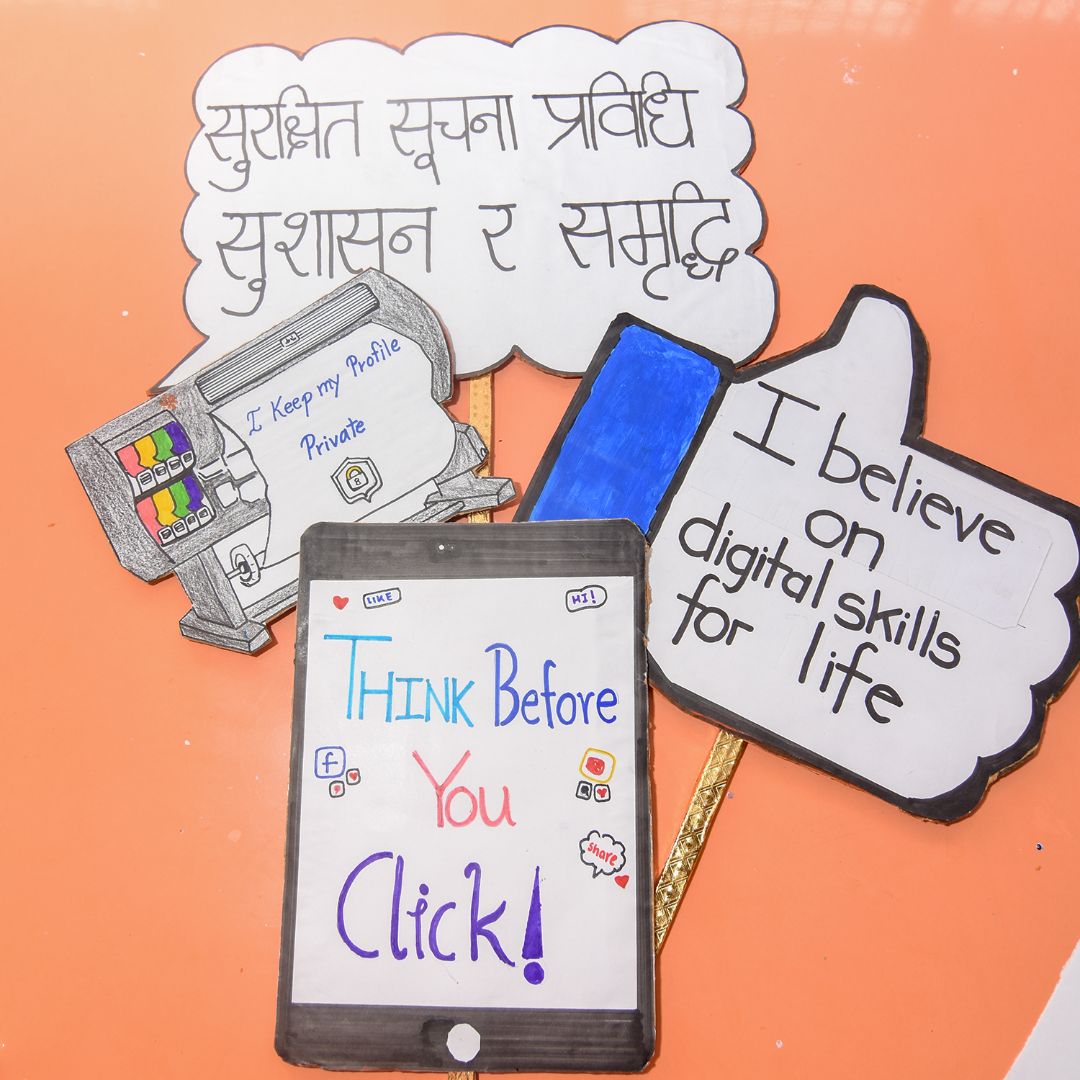 सुरक्षित सूचना प्रविधि
सुशासन र समृद्धि
I Keep my Profile
Private
I believe
on
digital skills
for life
LIKE
HI!
THINK Before
You
Click!
f
share